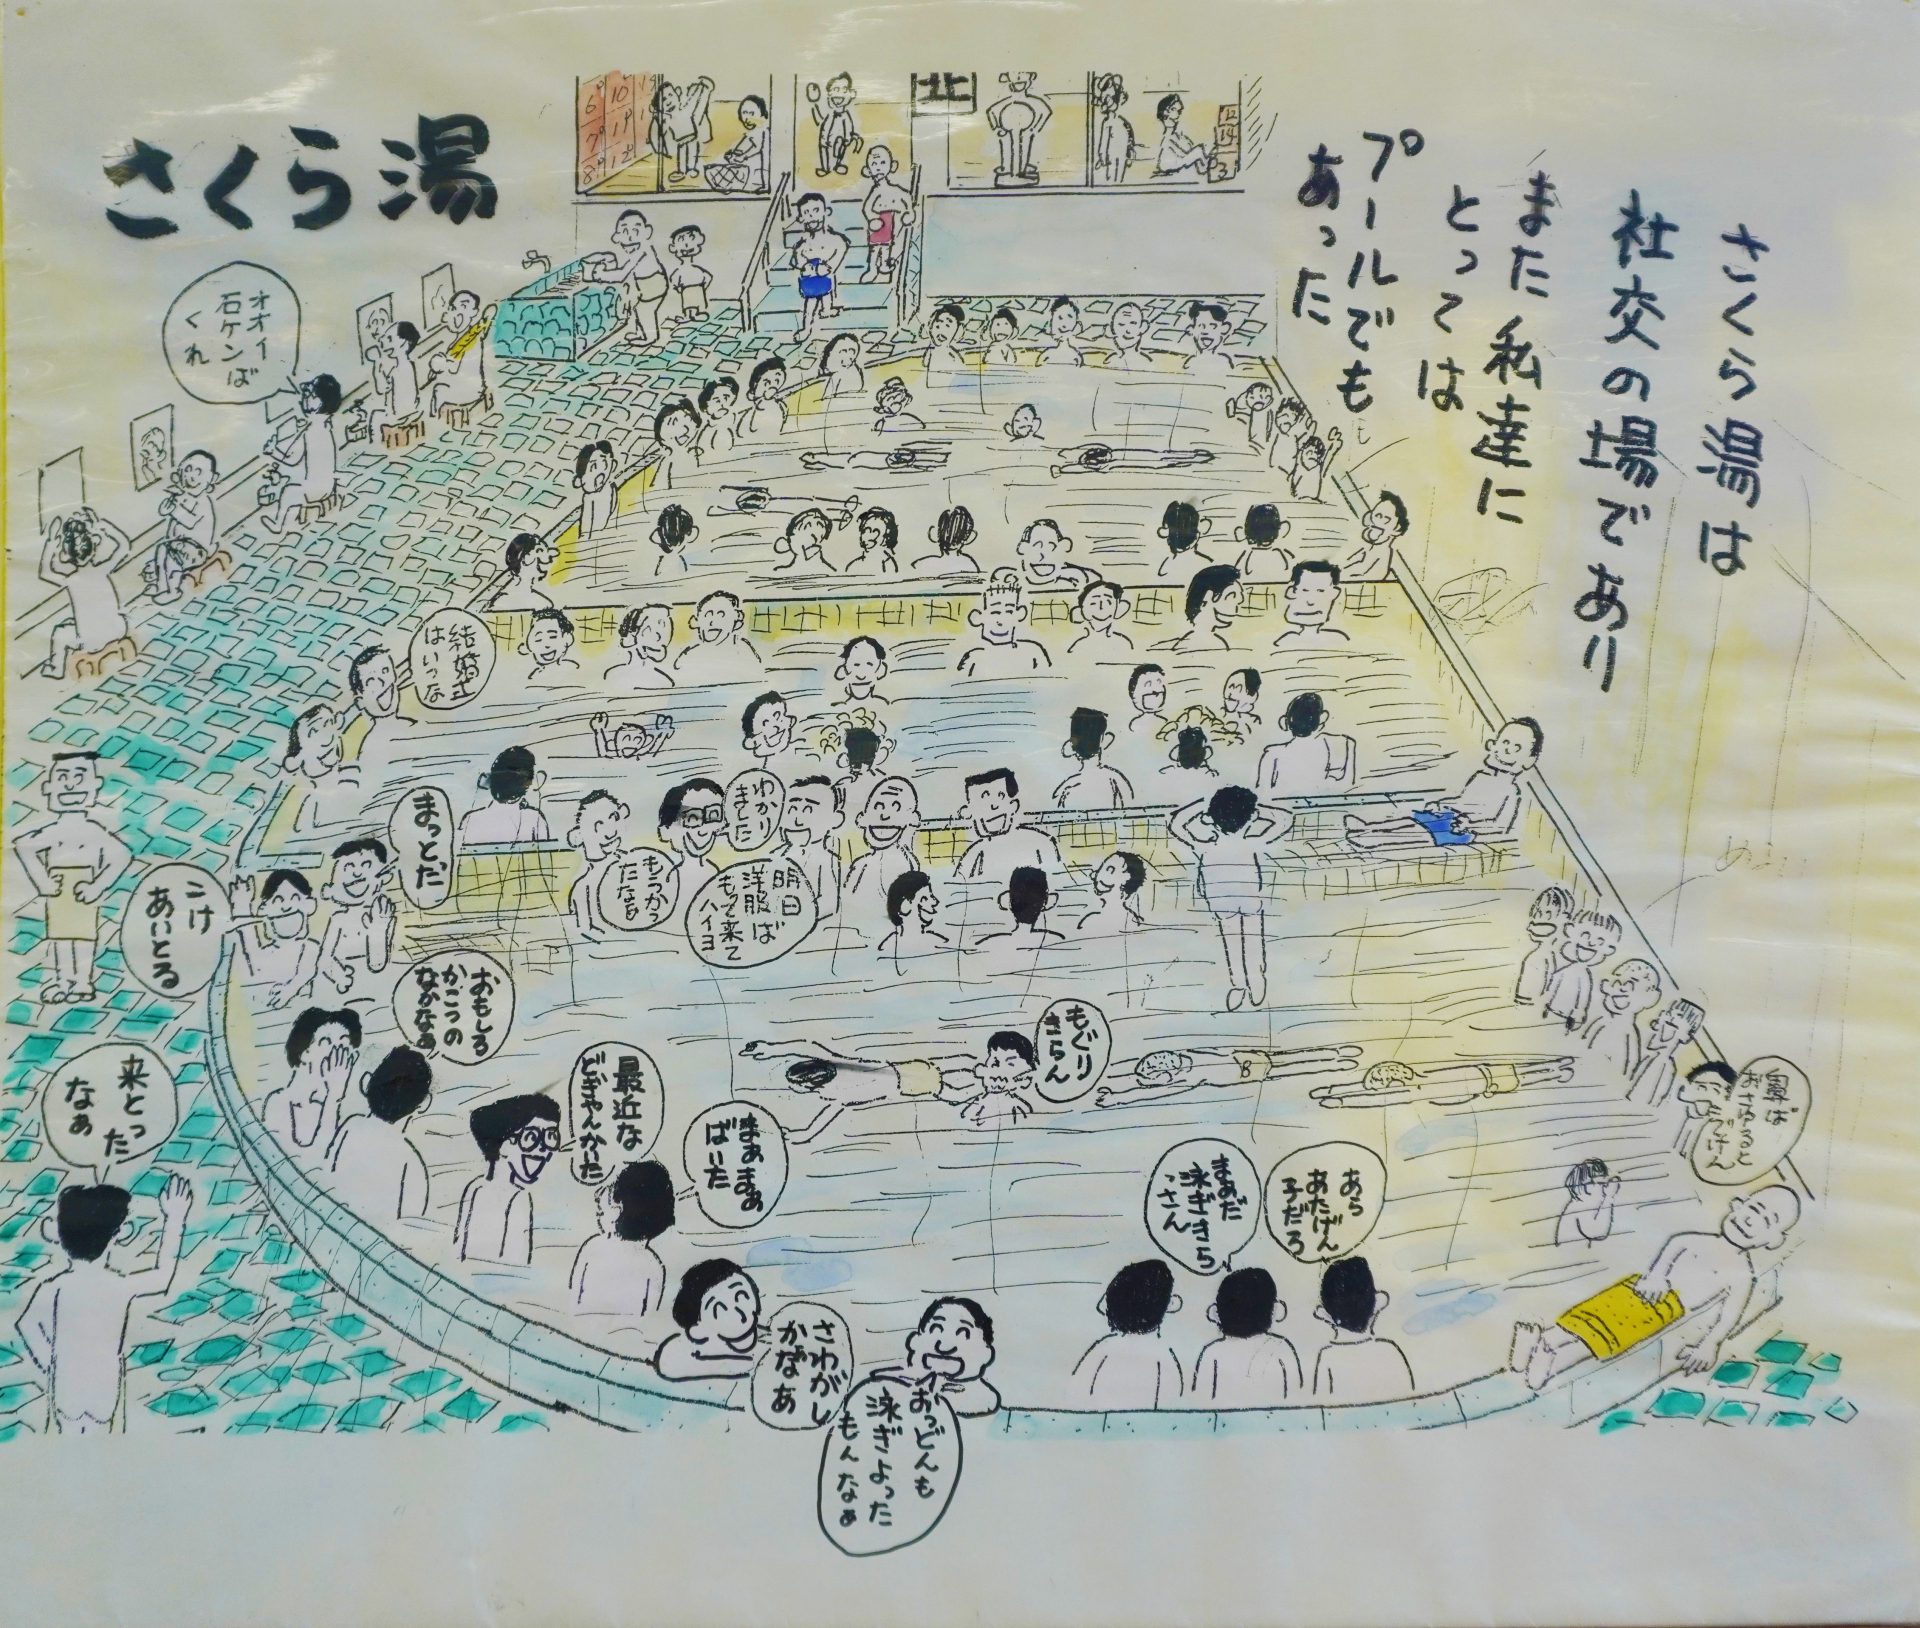 さくら湯
さくら湯は
社交の場であり
また私達に
とっては
プールでも
あった
北
6
10
7
19
8
12
12
14
3
オオイ
石ケンば
くれ
結婚式
はいつな
まっとだ
こけ
あいとる
来とった
なぁ
おもしろ
かこつの
なかなぁ
わかり
ました
もうかっ
たなぁ
明日
洋服ば
もって来て
ハイヨ
もぐり
きらん
最近な
どぎゃんかいた
まぁまぁ
ばいた
まあだ
泳ぎきら
っさん
あら
あたげん
子だろ
鼻ば
おさゆっと
さわがし
かなあ
おっどんも
泳ぎよった
もんなぁ
B